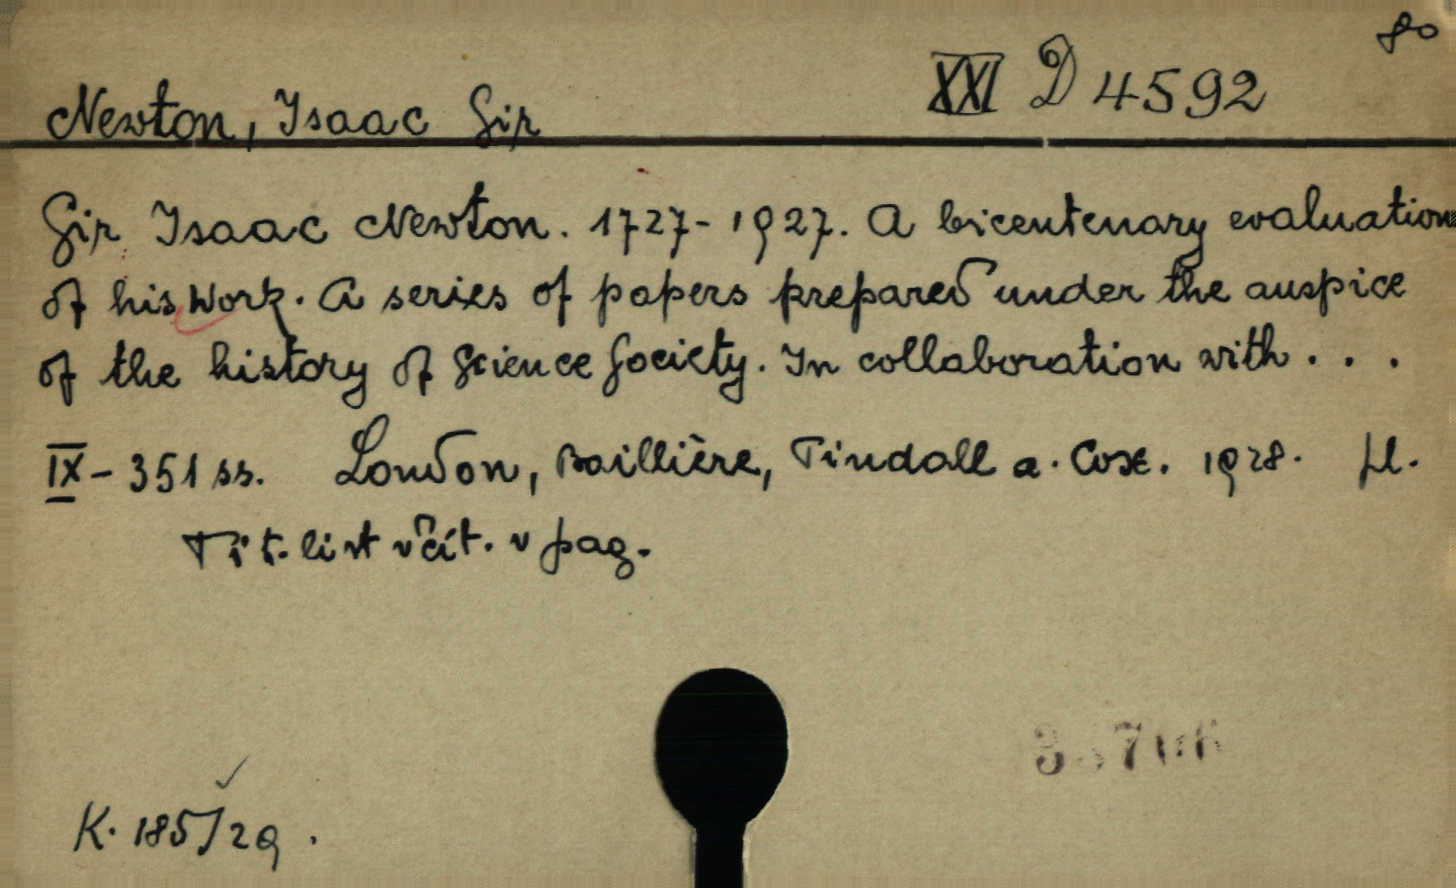 80
Newton, Isaac Sir
XXI D 4592
Sir Isaac Newton. 1727-1927. A bicentenary evaluation
of his Work. A series of papers prepared under the auspice
of the history of Science Society. In collaboration with . . .
IX - 351 ss. London, Baillière, Tindall a. Cox. 1928.
Tit. list včít. v pag.
K. 185/29.